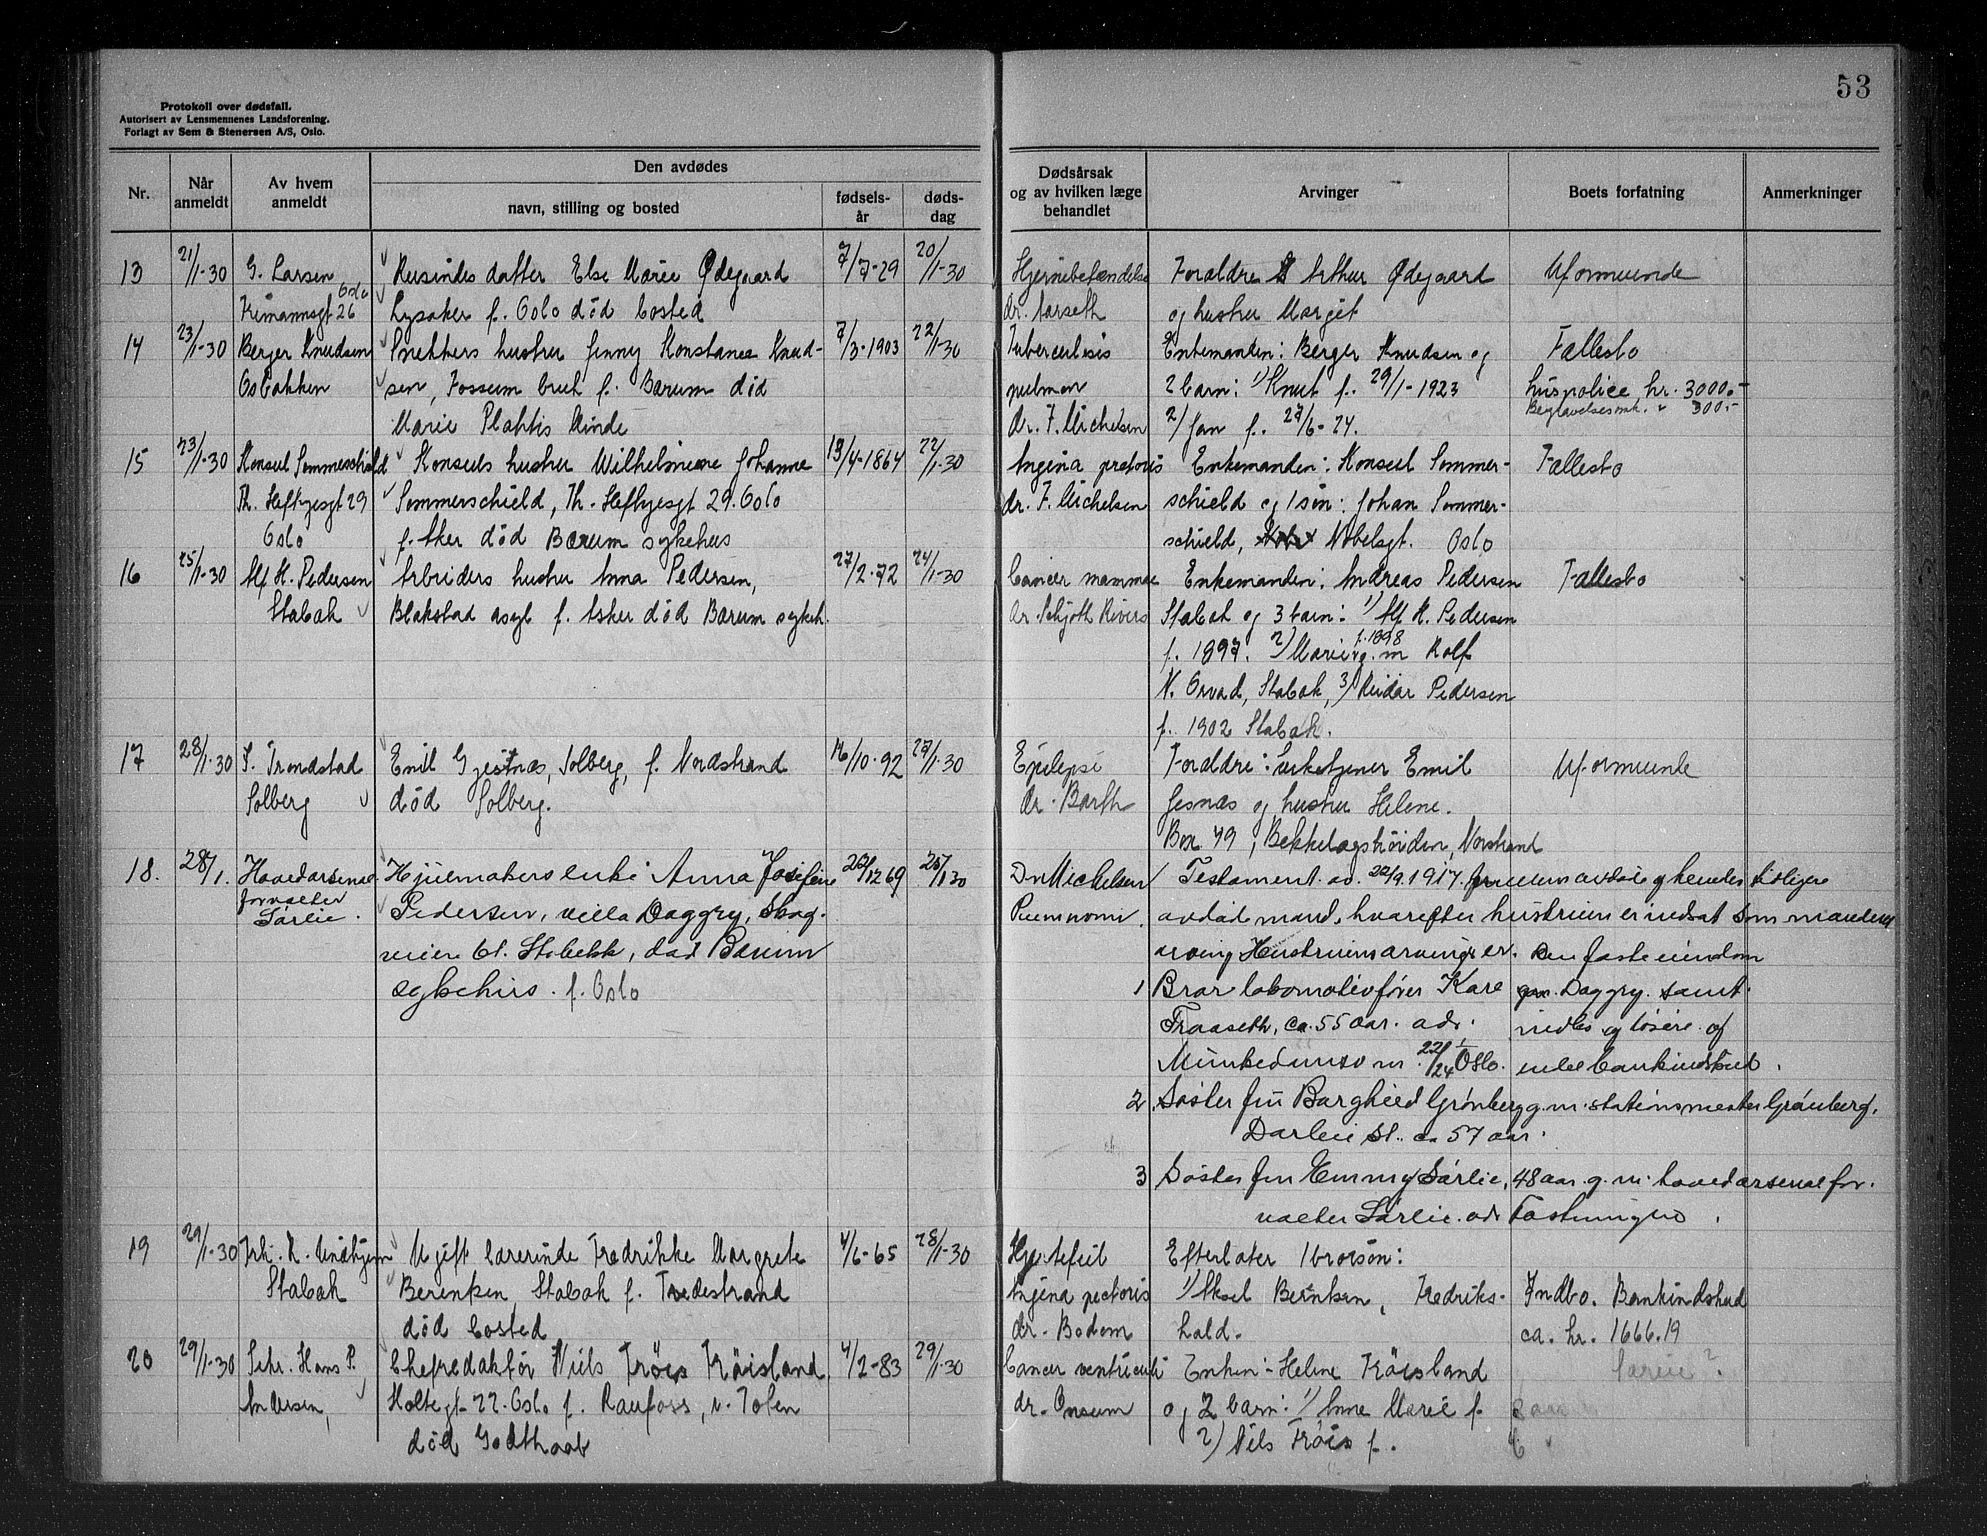 53
Protokoll over dødsfall.
Autorisert av Lensmennenes Landsforening.
Forlagt av Sem & Stenersen A/S, Oslo.
Nr.
Når anmeldt
Av hvem anmeldt
Den avdødes
navn, stilling og bosted
fødsels-år
døds-dag
Dødsårsak og av hvilken læge behandlet
Arvinger
Boets forfatning
Anmerkninger
13
21/1-30
G. Larsen
Oslo
26
datter Else Marie Ødegaard
Lysaker f. Oslo död bosted
7/7-29
20/1-30
Hjernebetændelse
dr. Aarseth
Foreldre Arthur Ødegaard
og hustru Margit
Uformuende
14
23/1-30
Berger Knudsen
Osbakken
Snekkers hustru Jenny Konstanse Knud-
sen, Fossum bruk f. Bærum död
Marie Plahtes Minde
7/3-1903
22/1-30
Tuberculosis
pulmon
dr. F. Michelsen
Enkemanden: Berger Knudsen og
2 barn: 1) Knut f. 29/1-1923
2) Jan f. 27/6-24.
Fællesbo
huspolice kr. 3000.-
Begravelsesmk. " 300.-
15
23/1-30
Konsul Sommerschield
Th. Heftyesgt 29
Oslo
Konsuls hustru Wilhelmine Johanne
Sommerschield, Th. Heftyesgt 29. Oslo
f. Aker död Bærum sykehus
13/4-1864
22/1-30
Angina pectoris
dr. F. Michelsen
Enkemanden: Konsul Sommer-
schield og 1 sön: Johan Sommer-
schield, Nobelsgt. Oslo
Fællesbo
16
25/1-30
Alf H. Pedersen
Stabæk
Arbeiders hustru Anna Pedersen,
Blakstad asyl f. Asker död Bærum sykeh.
27/2-72
24/1-30
Cancer mammae
dr. Schjøth Rivers
Enkemanden: Andreas Pedersen
Stabæk og 3 barn: 1) Alf H. Pedersen
f. 1897. 2) Marie f. 1898 g. m Rolf
N. Orvad, Stabæk, 3) Reidar Pedersen
f. 1902 Stabæk.
Fællesbo
17
28/1-30
S. Trondstad
Solberg
Emil Gjestnæs, Solberg, f. Nordstrand
död Solberg.
16/10-92
27/1-30
Epilepsi
dr. Barth
Foreldre: Emil
Jesnæs og hustru Helene.
Box 49, Bekkelagshöiden, Norstrand
Uformuende
18.
28/1.
Hovedarsenal-
forvalter
Sørlie.
Hjulmakers enke Anna Josefine
Pedersen, villa Daggry, Skog-
veien 61. Stabekk, död Bærum
sykehus. f. Oslo
12 69
25/1 30
Dr Michelsen
Pneumoni
Testament av 22/9.1917. mellem avdøde og hendes tidligere
avdöd mand, hvorefter hustruen er indsat som mandens
arving. Hustruens arvinger er. Den faste eiendom
1 Bror lokomotivfører Kåre
Fraaseth, ca. 55 aar. adr.
Munkedamsv m. 22/24 Oslo.
Daggry. samt
indbo og løsøre og
endel bankindskud.
2. Søster fru Borghild Grønberg g. m. stationsmester Grønberg.
Darlie St. ca 57 aar.
3 Søster fru Emmy Sørlie, 48 aar. g. m. hovedarsenalfor-
valter Sørlie. adr Fæstningen.
19
29/1-30
Frk. R. Midthjem
Stabæk
Ugift lærerinde Fredrikke Margrete
Berentsen, Stabæk f. Tvedestrand
död bosted
4/6-65
28/1-30
Hjertefeil
Angina pectoris
dr. Bodom
Efterlater 1 brorsön:
1) Aksel Berntsen, Fredriks-
hald.
Indbo. Bankindskud
ca. kr. 1666.19
20
29/1-30
Sekr. Hans P.
Andersen,
Chefredaktör Niels Tröis Kröisland
Holtegt 22. Oslo f. Raufoss, v. Toten
död Godthaab
4/2-83
29/1-30
Cancer ventriculi
dr. Onsum
Enken: Helene Kröisland
og 2 barn: 1) Anne Marie f.
2) Nils Tröis f.
8 aar
6 "